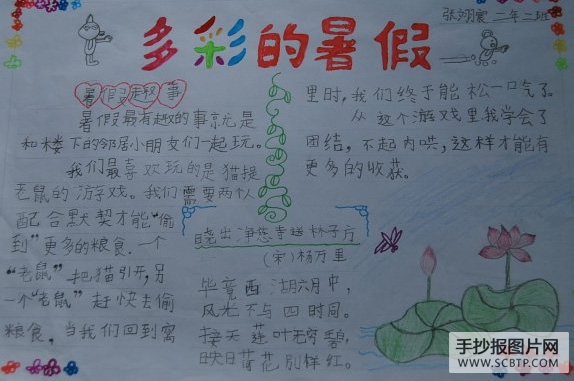 张翊宸 二年二班
多彩的暑假
暑假趣事
暑假最有趣的事就是
和楼下的邻居小朋友们一起玩。
我们最喜欢玩的是猫捉
老鼠的游戏。我们需要两个人
配合默契才能“偷
到”更多的粮食。一个
“老鼠”把猫引开,另
一个“老鼠”赶快去偷
粮食,当我们回到窝
里时,我们终于能松一口气了。
从这个游戏里我学会了
团结,不起内哄,这样才能有
更多的收获。
晓出净慈寺送林子方
(宋)杨万里
毕竟西湖六月中,
风光不与四时同。
接天莲叶无穷碧,
映日荷花别样红。
手抄报图片网
WWW.SCBTP.COM